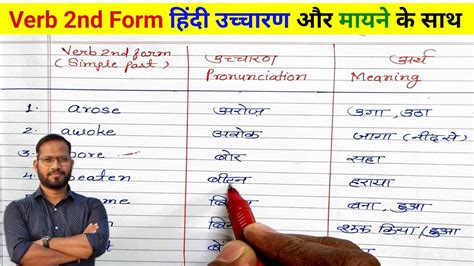 Verb 2nd Form हिंदी उच्चारण और मायने के साथ
Verb 2nd form उच्चारण अर्थ
(Simple Past) Pronunciation Meaning
1. arose अरोज़ उगा, उठा
2. awoke अवोक जागा (नींद से)
3. bore बोर सहा
4. beaten बीटन हराया
बना, हुआ
शुरू किया / हुआ